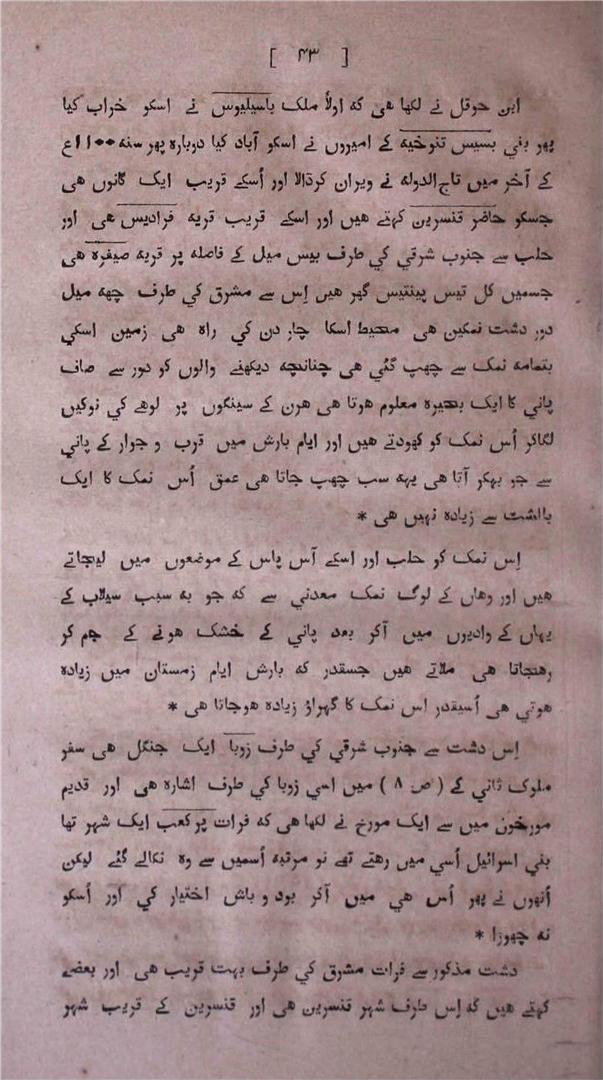 [ ۴۳ ]
ابن حوقل نے لکھا هی که اولاً ملک باسیلیوس نے اسکو خراب کیا
پهر بني بسیس تنوخیه کے امیروں نے اسکو آباد کیا دوباره پهر سنه ۱۱۰۰ع
کے آخر میں تاج الدوله نے ویران کرڈالا اور اُسکے قریب ایک گانوں هی
جسکو حاضر قنسرین کہتے هیں اور اسکے قریب قریه فرادیس هی اور
حلب سے جنوب شرقي کي طرف بیس میل کے فاصله پر قریه صیفره هی
جسمیں کل تیس پینتیس گهر هیں اِس سے مشرق کي طرف چهه میل
دور دشت نمکین هی محیط اسکا چار دن کي راه هی زمین اسکي
بتمامه نمک سے چهپ گئي هی چنانچه دیکهنے والوں کو دور سے صاف
پاني کا ایک بحیره معلوم هوتا هی هرن کے سینگوں پر لوهے کي نوکیں
لگاکر اُس نمک کو کهودتے هیں اور ایام بارش میں قرب و جوار کے پاني
سے جو بهکر آتا هی یهه سب چهپ جاتا هی عمق اُس نمک کا ایک
بالشت سے زیاده نہیں هی *
اِس نمک کو حلب اور اسکے آس پاس کے موضعوں میں لیجاتے
هیں اور وهاں کے لوگ نمک معدني سے که جو به سبب سیلاب کے
یہاں کے وادیوں میں آکر بعد پاني کے خشک هونے کے جم کر
رهجاتا هی ملاتے هیں جسقدر که بارش ایام زمستان میں زیاده
هوتي هی اُسیقدر اس نمک کا گہراؤ زیاده هوجاتا هی *
اِس دشت سے جنوب شرقي کي طرف زوبا ایک جنگل هی سفر
ملوک ثاني کے ( ص ۸ ) میں اسي زوبا کي طرف اشاره هی اور قدیم
مورخون میں سے ایک مورخ نے لکها هی که فرات پر کعب ایک شہر تها
بني اسرائیل اُسي میں رهتے تهے نو مرتبه اُسمیں سے وه نکالے گئے لیکن
اُنهوں نے پهر اُس هي میں آکر بود و باش اختیار کي اور اُسکو
نه چهوڑا *
دشت مذکور سے فرات مشرق کي طرف بہت قریب هی اور بعضے
کہتے هیں که اِس طرف شہر قنسرین هی اور قنسرین کے قریب شہر